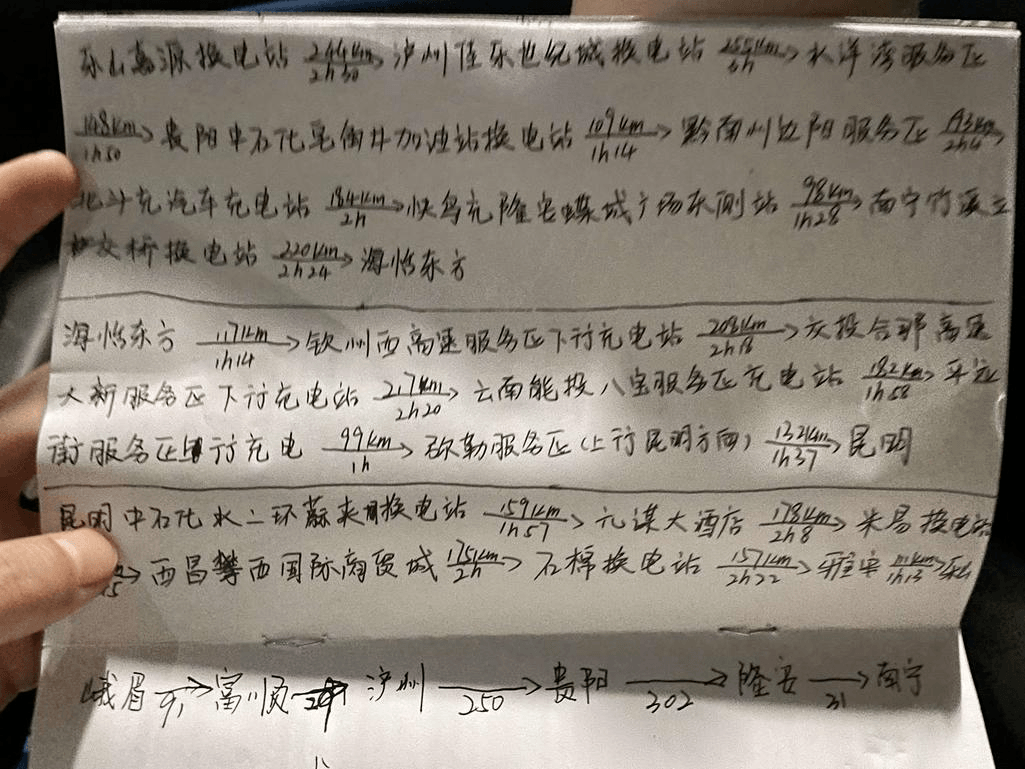 乐山高源换电站 244km 2h50 → 泸州佳乐世纪城换电站 255km 3h → 水洋湾服务区
148km 1h50 → 贵阳中石化 加油站换电站 109km 1h14 → 黔南州边阳服务区 193km 2h4 →
北斗充汽车充电站 184km 2h → 快乌充隆安蝶城广场东侧站 98km 1h28 → 南宁竹溪立
交桥换电站 220km 2h24 → 海悦东方
海悦东方 117km 1h14 → 钦州西高速服务区下行充电站 208km 2h18 → 交投合那高速
大新服务区下行充电站 217km 2h20 → 云南能投八宝服务区充电站 182km 1h58 → 平远
街服务区 行充电 99km 1h → 弥勒服务区(上行昆明方向) 132km 1h37 → 昆明
昆明中石化水二环 换电站 159km 1h57 → 元谋大酒店 178km 2h8 → 米易换电站
→ 西昌攀西国际商贸城 175km 2h → 石棉换电站 157km 2h22 → 雅安 111km 1h13 →
峨眉 91 → 富顺 → 泸州 250 → 贵阳 302 → 隆安 31 → 南宁